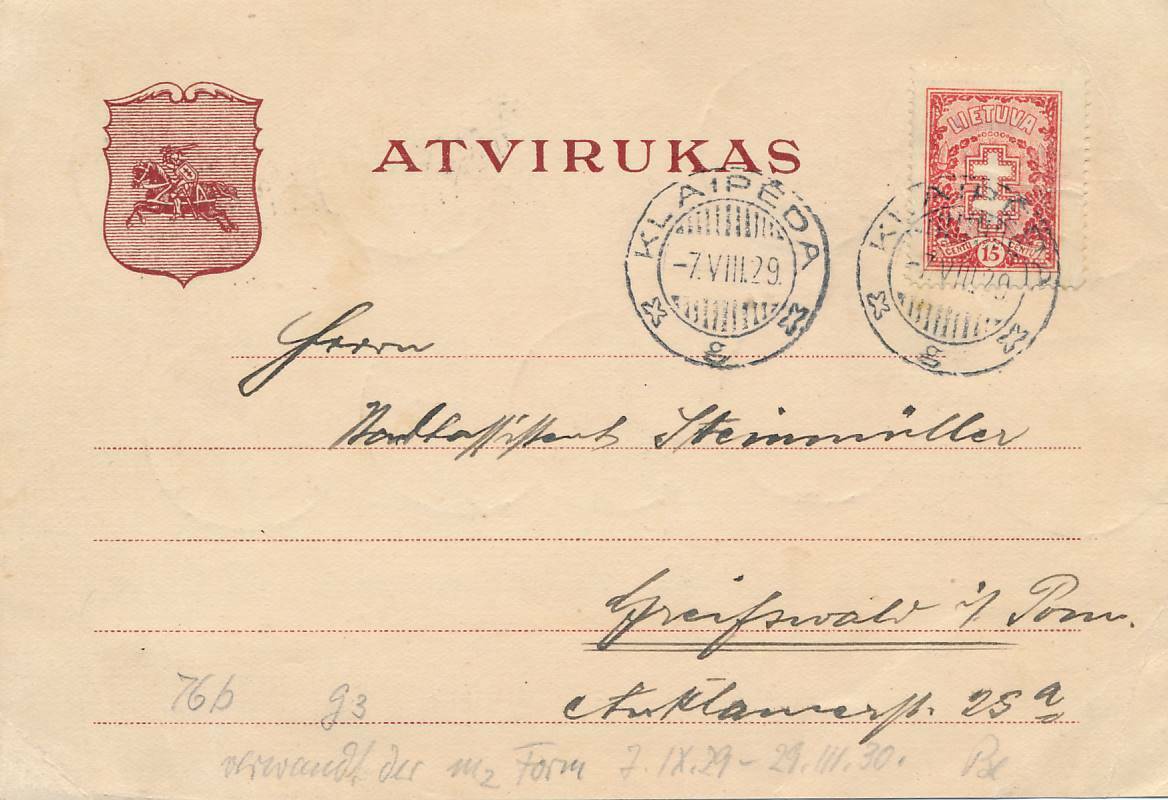 ATVIRUKAS
LIETUVA
CENTŲ 15 CENTŲ
KLAIPĖDA
-7.VIII.29.
g
KLAIPĖDA
-7.VIII.29.
g
Herrn
Stadtassistent Steinmüller
Greifswald i/ Pom.
Anklamerstr. 25a
76b g3
verwandt der m2 Form 7.IX.29 - 29.III.30.